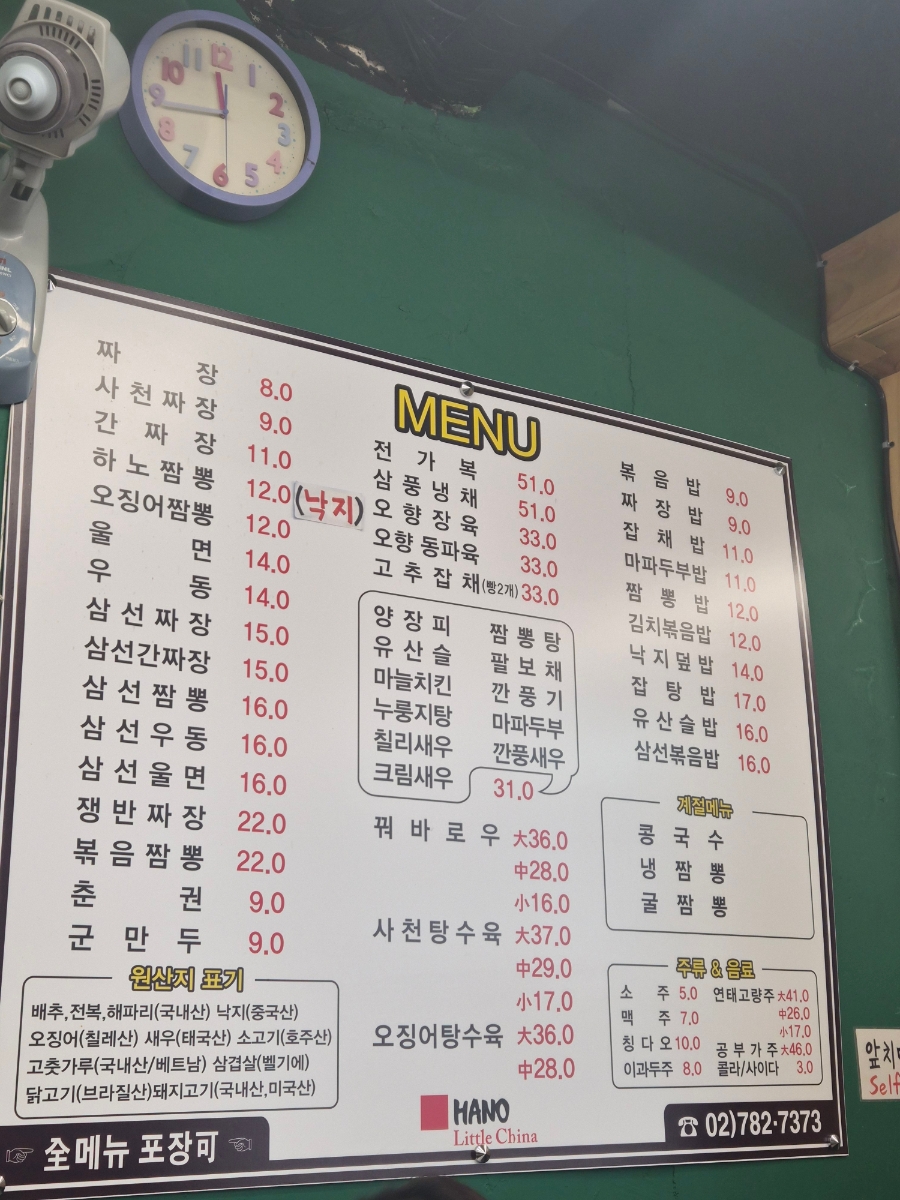 12
1
2
3
4
5
6
7
8
9
10
11
MENU
짜 장 8.0
사천짜장 9.0
간 짜 장 11.0
하노짬뽕 12.0 (낙지)
오징어짬뽕 12.0
울 면 14.0
우 동 14.0
삼선짜장 15.0
삼선간짜장 15.0
삼선짬뽕 16.0
삼선우동 16.0
삼선울면 16.0
쟁반짜장 22.0
볶음짬뽕 22.0
춘 권 9.0
군 만 두 9.0
원산지 표기
배추,전복,해파리(국내산) 낙지(중국산)
오징어(칠레산) 새우(태국산) 소고기(호주산)
고춧가루(국내산/베트남) 삼겹살(벨기에)
닭고기(브라질산)돼지고기(국내산,미국산)
☞ 全메뉴 포장可 ☜
전 가 복 51.0
삼풍냉채 51.0
오향장육 33.0
오향동파육 33.0
고추잡채(빵2개) 33.0
양장피 짬뽕탕
유산슬 팔보채
마늘치킨 깐풍기
누룽지탕 마파두부
칠리새우 깐풍새우
크림새우 31.0
꿔바로우 大36.0
中28.0
小16.0
사천탕수육 大37.0
中29.0
小17.0
오징어탕수육 大36.0
中28.0
HANO
Little China
볶 음 밥 9.0
짜 장 밥 9.0
잡 채 밥 11.0
마파두부밥 11.0
짬 뽕 밥 12.0
김치볶음밥 12.0
낙지덮밥 14.0
잡 탕 밥 17.0
유산슬밥 16.0
삼선볶음밥 16.0
계절메뉴
콩 국 수
냉 짬 뽕
굴 짬 뽕
주류 & 음료
소 주 5.0 연태고량주 大41.0
맥 주 7.0 中26.0
小17.0
칭다오 10.0 공부가주 大46.0
이과두주 8.0 콜라/사이다 3.0
☎ 02)782-7373
앞치
Self